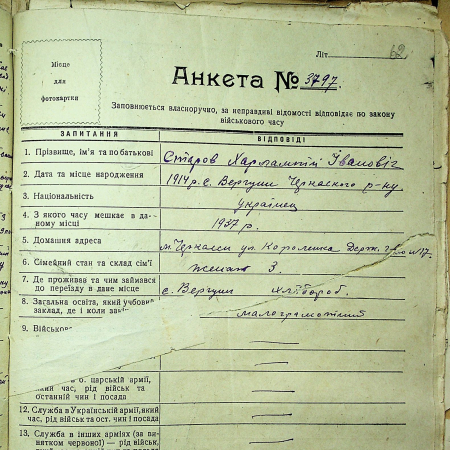 Літ.
62
Місце
для
фотокартки
Анкета № 3797.
Заповнюється власноручно, за неправдиві відомості відповідає по закону
військового часу
ЗАПИТАННЯ
ВІДПОВІДІ
1. Прізвище, ім'я та по батькові
Старов Харлампій Іванович
2. Дата та місце народження
1914 р. с. Вергуни Черкаського р-ну
3. Національність
українец
4. З якого часу мешкає в даному місці
1937 р.
5. Домашня адреса
м. Черкаси ул. Короленка Держ.
6. Сімейний стан та склад сім'ї
женат 3.
7. Де проживав та чим займався
до переїзду в дане місце
с. Вергуни хлібороб.
8. Загальна освіта, який учбовий
заклад, де і коли
малограмотний
9. Військов
в б. царській армії,
який час, рід військ та
останній чин і посада
12. Служба в Українській армії, який
час, рід військ та ост. чин і посада
13. Служба в інших арміях (за ви-
нятком червоної) — рід військ,